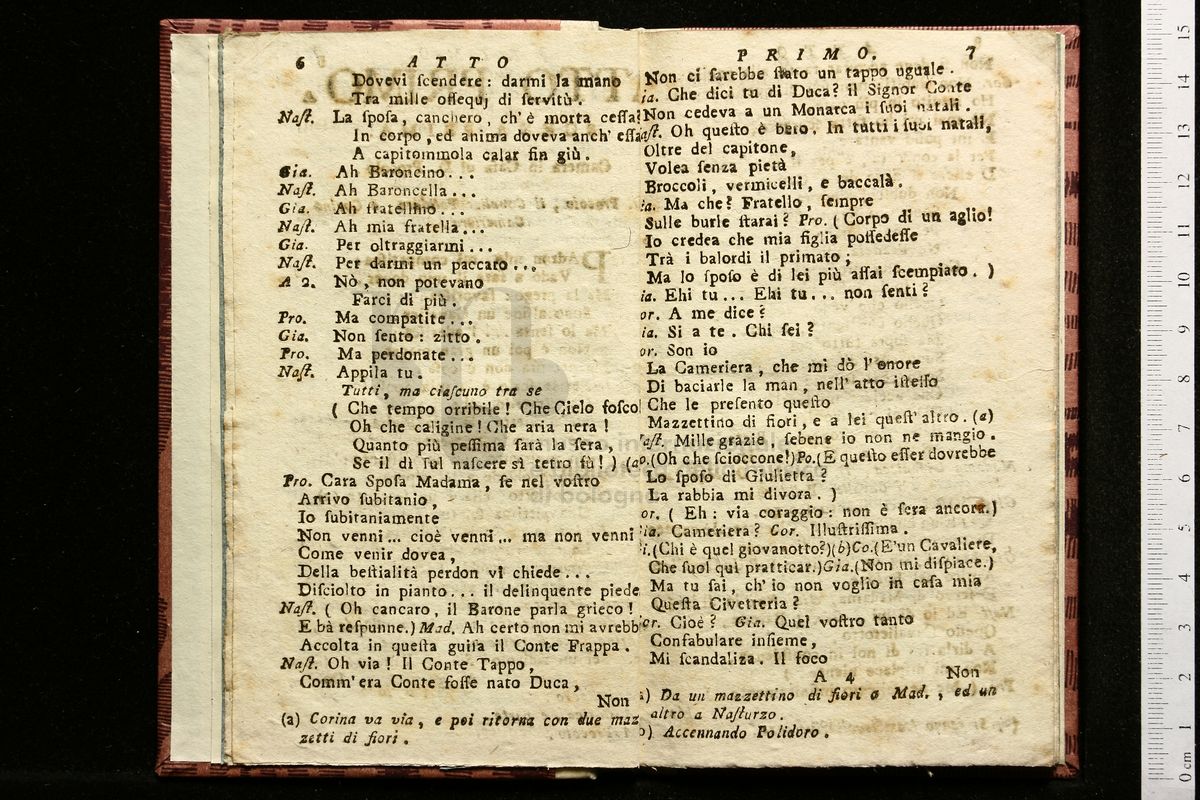 6 ATTO
Dovevi ſcendere: darmi la mano
Tra mille oſſequj di ſervitù.
Naſt. La ſpoſa, canchero, ch' è morta ceſſa!
In corpo, ed anima doveva anch' eſſa
A capitommola calar fin giù.
Gia. Ah Baroncino...
Naſt. Ah Baroncella...
Gia. Ah fratellino...
Naſt. Ah mia fratella...
Gia. Per oltraggiarmi...
Naſt. Per darmi un paccaro...
A 2. Nò, non potevano
Farci di più.
Pro. Ma compatite...
Gia. Non ſento: zitto.
Pro. Ma perdonate...
Naſt. Appila tu.
Tutti, ma ciaſcuno tra se
( Che tempo orribile! Che Cielo foſco!
Oh che caligine! Che aria nera!
Quanto più peſſima ſarà la ſera,
Se il dì ſul naſcere sì tetro fù! ) (a
Pro. Cara Spoſa Madama, ſe nel voſtro
Arrivo ſubitanio,
Io ſubitaniamente
Non venni... cioè venni... ma non venni
Come venir dovea,
Della beſtialità perdon vi chiede...
Diſciolto in pianto... il delinquente piede
Naſt. ( Oh cancaro, il Barone parla grieco!
E bà reſpunne.) Mad. Ah certo non mi avrebb
Accolta in queſta guiſa il Conte Frappa.
Naſt. Oh via! Il Conte Tappo,
Comm' era Conte foſſe nato Duca,
Non
(a) Corina va via, e poi ritorna con due maz
zetti di fiori.
PRIMO. 7
Non ci ſarebbe ſtato un tappo uguale.
ia. Che dici tu di Duca? il Signor Conte
Non cedeva a un Monarca i ſuoi natali.
aſt. Oh queſto è bero. In tutti i ſuoi natali,
Oltre del capitone,
Volea ſenza pietà
Broccoli, vermicelli, e baccalà.
ia. Ma che? Fratello, ſempre
Sulle burle ſtarai? Pro. ( Corpo di un aglio!
Io credea che mia figlia poſſedeſſe
Trà i balordi il primato;
Ma lo ſpoſo è di lei più aſſai ſcempiato. )
ia. Ehi tu... Ehi tu... non ſenti?
or. A me dice?
ia. Si a te. Chi ſei?
or. Son io
La Cameriera, che mi dò l'onore
Di baciarle la man, nell' atto iſteſſo
Che le preſento queſto
Mazzettino di fiori, e a lei queſt' altro. (a)
aſt. Mille grazie, ſebene io non ne mangio.
o. (Oh che ſcioccone!) Po. (E queſto eſſer dovrebbe
Lo ſpoſo di Giulietta?
La rabbia mi divora. )
or. ( Eh: via coraggio: non è ſera ancora.)
ia. Cameriera? Cor. Illuſtriſſima.
i. (Chi è quel giovanotto?)(b) Co. (E'un Cavaliere,
Che ſuol qui pratticar.) Gia. (Non mi diſpiace.)
Ma tu ſai, ch' io non voglio in caſa mia
Queſta Civetteria?
or. Cioè? Gia. Quel voſtro tanto
Confabulare inſieme,
Mi ſcandaliza. Il foco
A 4 Non
a) Da un mazzettino di fiori a Mad., ed un
altro a Naſturzo.
b) Accennando Polidoro.